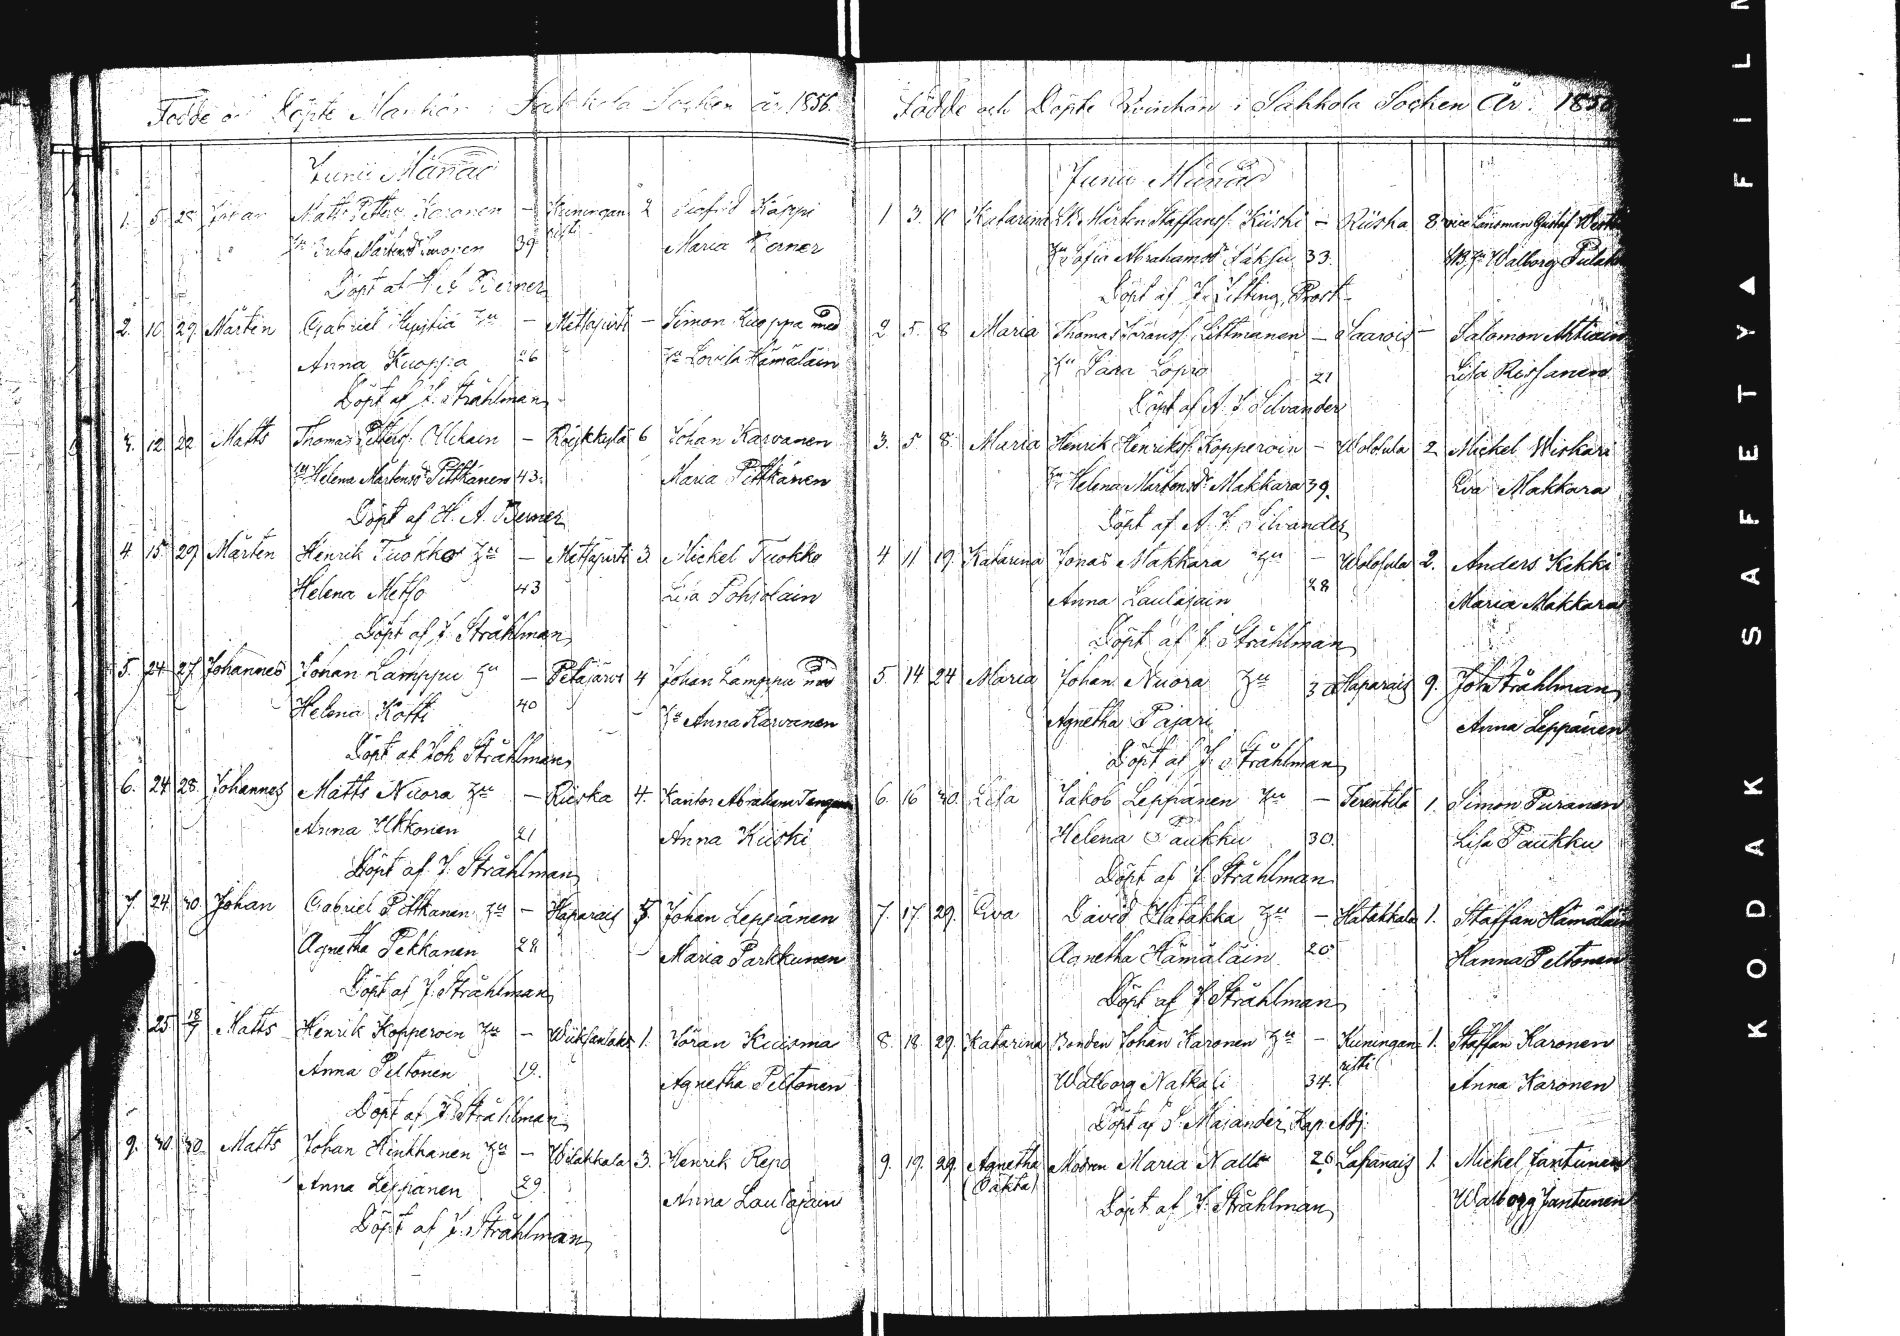 Födde och Döpte Mankön i Sakkola Socken år 1856.
Junii Månad
1. 5. 28 Johan Matts Petters. Karonen – Kuningan 2 Sigfrid Käppi
risti
Hu Brita Mårtensdr Suronen 39 Maria Korner
Döpt af H A Berner
2. 10. 29 Mårten Gabriel Hu – Metsäpirti – Simon Kuoppa med
Anna Kuoppa 26 Hu Lovisa Hämäläin
Döpt af J. Stråhlman
3. 12 22 Matts Thomas Petters. Ollikain – Röykkylä 6 Johan Karvanen
Hu Helena Mårtensdr Pittkänen 43. Maria Pittkänen
Döpt af H. A. Berner
4 15 29 Mårten Henrik Tuokko Hu – Metsäpirti 3. Mickel Tuokko
Helena Metso 43 Lisa Pohjolain
Döpt af J. Stråhlman
5. 24 27. Johannes Johan Lamppu Hu – Petäjärvi 4 Johan Lamppu med
Helena Kotti 40 Hu Anna Karvanen
Döpt af Joh Stråhlman
6. 24 28. Johannes Matts Nuora Hu – Riiska 4. Kantor Abraham
Anna Ukkonen 21 Anna Kiiski
Döpt af J. Stråhlman
7. 24. 30. Johan Gabriel Pittkanen Hu – Haparais 5 Johan Leppänen
Agnetha Pekkanen 28 Maria Parkkunen
Döpt af J. Stråhlman
25 18/7 Matts Henrik Kopperoin Hu – Wiiksanlaks 1. Jöran Kuisma
Anna Peltonen 19. Agnetha Peltonen
Döpt af J. Stråhlman
9. 30. 30. Matts Johan Hinkkanen Hu – Wilakkala 3. Henrik Repo
Anna Leppänen 29 Anna Laulajain
Döpt af J. Stråhlman
Födde och Döpte Qvinkön i Sakkola Socken År 1856
Junii Månad
1 3. 10 Katarina Mårten Staffanss. Kiiski – Riiska 8 vice Länsman Gustaf
Hu Sofia Abrahamsdr Säkju 33. Hu Walborg
Döpt af J. Zitting, Prost
2 5. 8 Maria Thomas Göranss. Littmanen – Saarois – Salomon Ahtiain
Hu Sara Lopro 21 Lisa Rissanen
Döpt af A. J. Silvander
3. 5 8. Maria Henrik Henrikss. Kopperoin – Wolosula 2 Mickel Wiskari
Hu Helena Mårtensdr Makkara 39. Eva Makkara
Döpt af A. J. Silvander
4 11 19. Katarina Jonas Makkara Hu – Wolosula 2. Anders Kekki
Anna Laulajain 28 Maria Makkara
Döpt af J. Stråhlman
5. 14 24 Maria Johan Nuora Hu 30 Haparais 9. Joh Stråhlman
Agnetha Pajari Anna Leppänen
Döpt af J. Stråhlman
6. 16 30. Lisa Jakob Leppänen Hu – Terentilä 1. Simon Puranen
Helena Paukku 30. Lisa Paukku
Döpt af J. Stråhlman
7. 17 29. Eva David Hatakka Hu – Hatakkala 1. Staffan Hämäläin
Agnetha Hämäläin 20 Hanna Peltonen
Döpt af J. Stråhlman
8. 18. 29. Katarina Bonden Johan Karonen Hu – Kuningan 1. Staffan Karonen
risti
Walborg Naskali 34. Anna Karonen
Döpt af S. Majander, Kap. Adj.
9. 19. 29. Agnetha Modren Maria Nalli 26 Lapanais 1 Mickel Jantunen
(Oäkta) Walborg Jantunen
Döpt af J. Stråhlman
KODAK SAFETY ▲ FILM